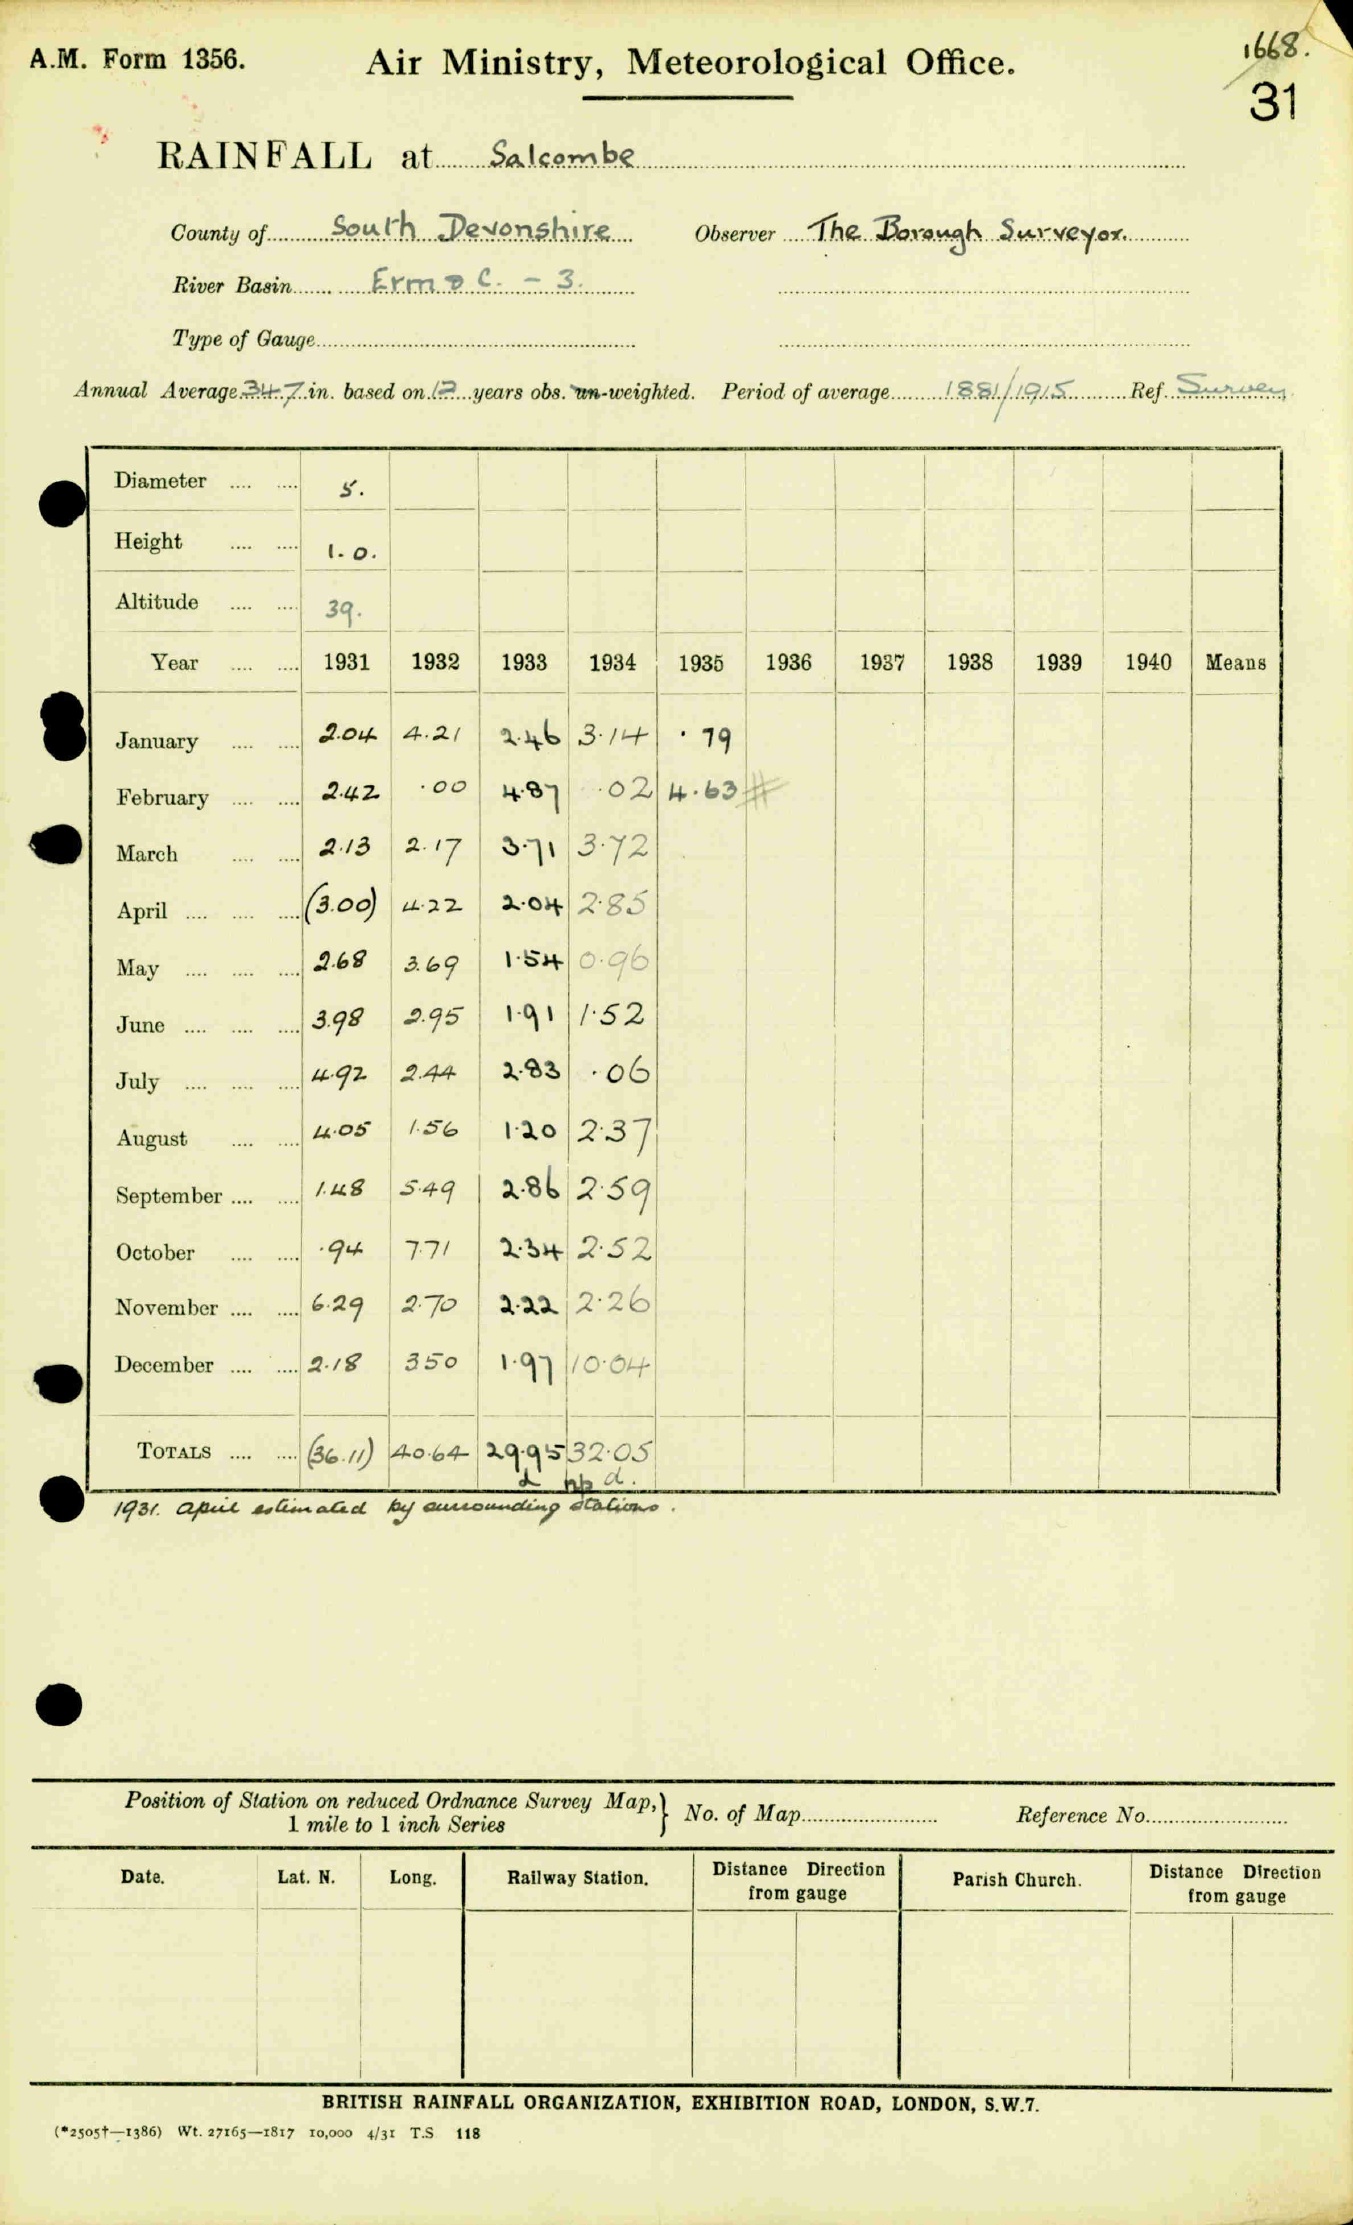 A.M. Form 1356.
Air Ministry, Meteorological Office.
1668.
31
RAINFALL at Salcombe
County of South Devonshire Observer The Borough Surveyor.
River Basin Erm & C. - 3.
Type of Gauge
Annual Average 34.7 in. based on 12 years obs. un-weighted. Period of average 1881/1915 Ref. Survey
Diameter .... .... 5.
Height .... .... 1.0.
Altitude .... .... 39.
Year .... .... 1931 1932 1933 1934 1935 1936 1937 1938 1939 1940 Means
January .... .... 2.04 4.21 2.46 3.14 .79
February .... .... 2.42 .00 4.87 .02 4.63 #
March .... .... 2.13 2.17 3.71 3.72
April .... .... .... (3.00) 4.22 2.04 2.85
May .... .... .... 2.68 3.69 1.54 0.96
June .... .... .... 3.98 2.95 1.91 1.52
July .... .... .... 4.92 2.44 2.83 .06
August .... .... 4.05 1.56 1.20 2.37
September .... .... 1.48 5.49 2.86 2.59
October .... .... .94 7.71 2.34 2.52
November .... .... 6.29 2.70 2.22 2.26
December .... .... 2.18 3.50 1.97 10.04
TOTALS .... .... (36.11) 40.64 29.95 32.05
d d.
1931. April estimated by surrounding stations.
Position of Station on reduced Ordnance Survey Map,} No. of Map Reference No.
1 mile to 1 inch Series
Date. Lat. N. Long. Railway Station. Distance Direction from gauge Parish Church. Distance Direction from gauge
BRITISH RAINFALL ORGANIZATION, EXHIBITION ROAD, LONDON, S.W.7.
(*2505†—1386) Wt. 27165—1817 10,000 4/31 T.S 118